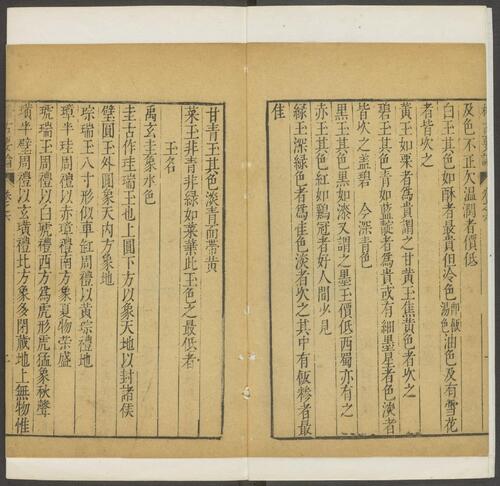 及色不正欠温潤者價低
白玉其色如酥者最貴但冷色即飯湯色油色及有雪花
者皆次之
黃玉如栗者爲貴謂之甘黃玉焦黃色者次之
碧玉其色青如藍靛者爲貴或有細墨星者色淡者
皆次之蓋碧 今深青色
黑玉其色黑如漆又謂之墨玉價低西蜀亦有之
赤玉其色紅如雞冠者好人間少見
綠玉深綠色者爲佳色淡者次之其中有飯糝者最
佳
甘青玉其色淡青而帶黃
菜玉非青非綠如菜葉此玉色之最低者
玉名
禹玄圭象水色
圭古作珪瑞玉也上圓下方以象天地以封諸侯
璧圓玉外圓象天內方象地
琮瑞玉八寸形似車釭周禮以黃琮禮地
璋半珪周禮以赤璋禮南方象夏物崇盛
琥瑞玉周禮以白琥禮西方爲虎形虎猛象秋聲
璜半璧周禮以玄璜禮北方象冬閉藏地上無物惟